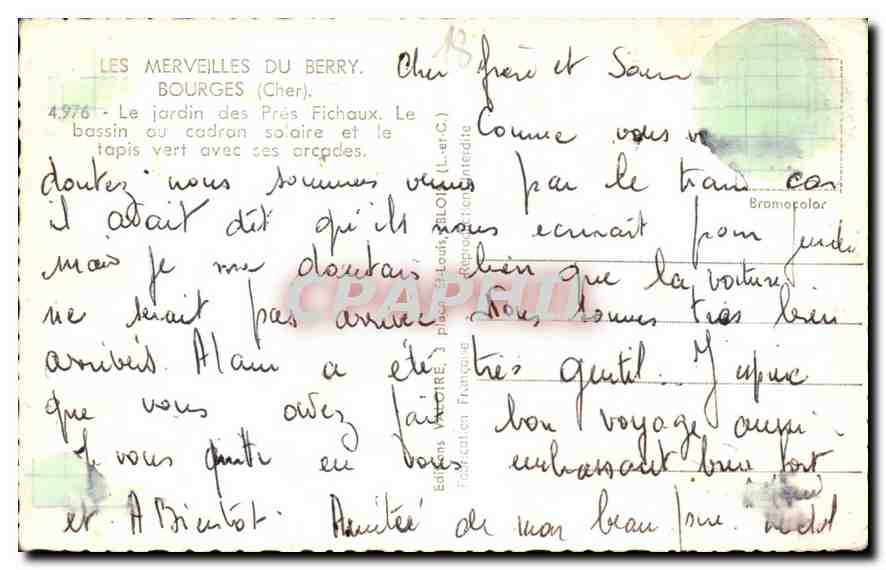 LES MERVEILLES DU BERRY.
BOURGES (Cher).
4.976 - Le jardin des Prés Fichaux. Le
bassin au cadran solaire et le
tapis vert avec ses arcades.
13
Cher frère et Soeur
Comme vous
doutez nous sommes venus par le train car
il avait dit qu'ils nous ecrivait pour jeudi
mais je me doutais bien que la voiture
ne serait pas arrivée Nous sommes très bien
arrivés. Alain a été très gentil. J'espère
que vous avez fait bon voyage aussi.
Je vous quitte en vous embrassant bien fort
et A Bientôt. Amitée de mon beau frère.
Bromocolor
Editions VALOIRE, 3 place St-Louis, BLOIS (L.-et-C.)
Fabrication Française - Reproduction interdite
CPAPHIL